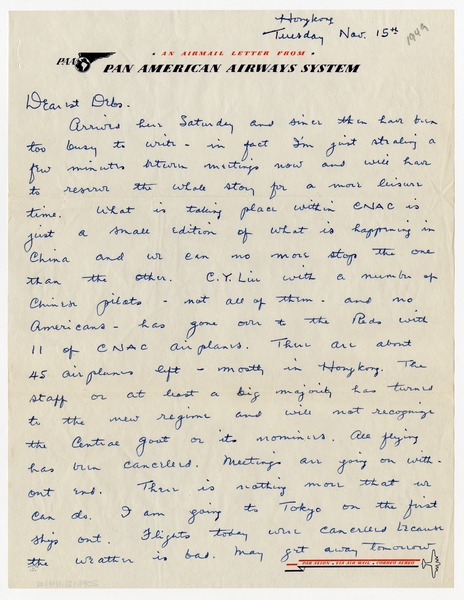 Hongkong
Tuesday Nov. 15th 1949
AN AIRMAIL LETTER FROM
PAA
PAN AMERICAN AIRWAYS SYSTEM
Dearest Debs.
Arrived here Saturday and since then have been
too busy to write - in fact I'm just stealing a
few minutes between meetings now and will have
to reserve the whole story for a more leisure
time. What is taking place within CNAC is
just a small edition of what is happening in
China and we can no more stop the one
than the other. C.Y. Liu with a number of
Chinese pilots - not all of them - and no
Americans - has gone over to the Reds with
11 of CNAC airplanes. There are about
45 airplanes left - mostly in Hongkong. The
staff or at least a big majority has turned
to the new regime and will not recognize
the Central Govt or its nominees. All flying
has been cancelled. Meetings are going on with-
out end. There is nothing more that we
can do. I am going to Tokyo on the first
ships out. Flights today were cancelled because
the weather is bad. May get away tomorrow
PAR AVION • VIA AIR MAIL • CORREO AEREO